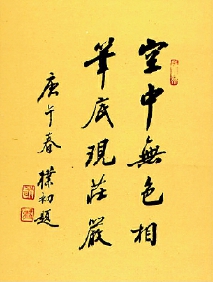 空中無色相
筆底現莊嚴
庚午春
樸初題